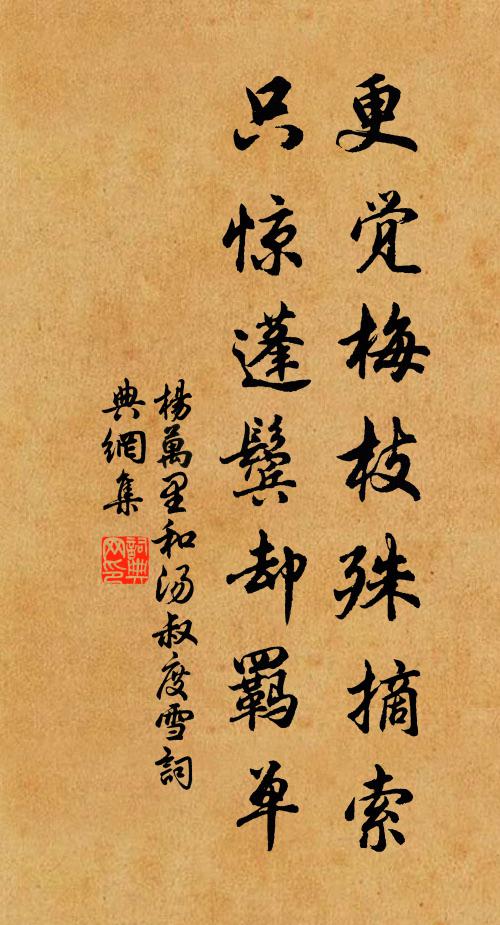 更觉梅枝殊摘索
只惊蓬鬓却羁单
楊萬里和汤叔度雪詞
典網集
詞典网印